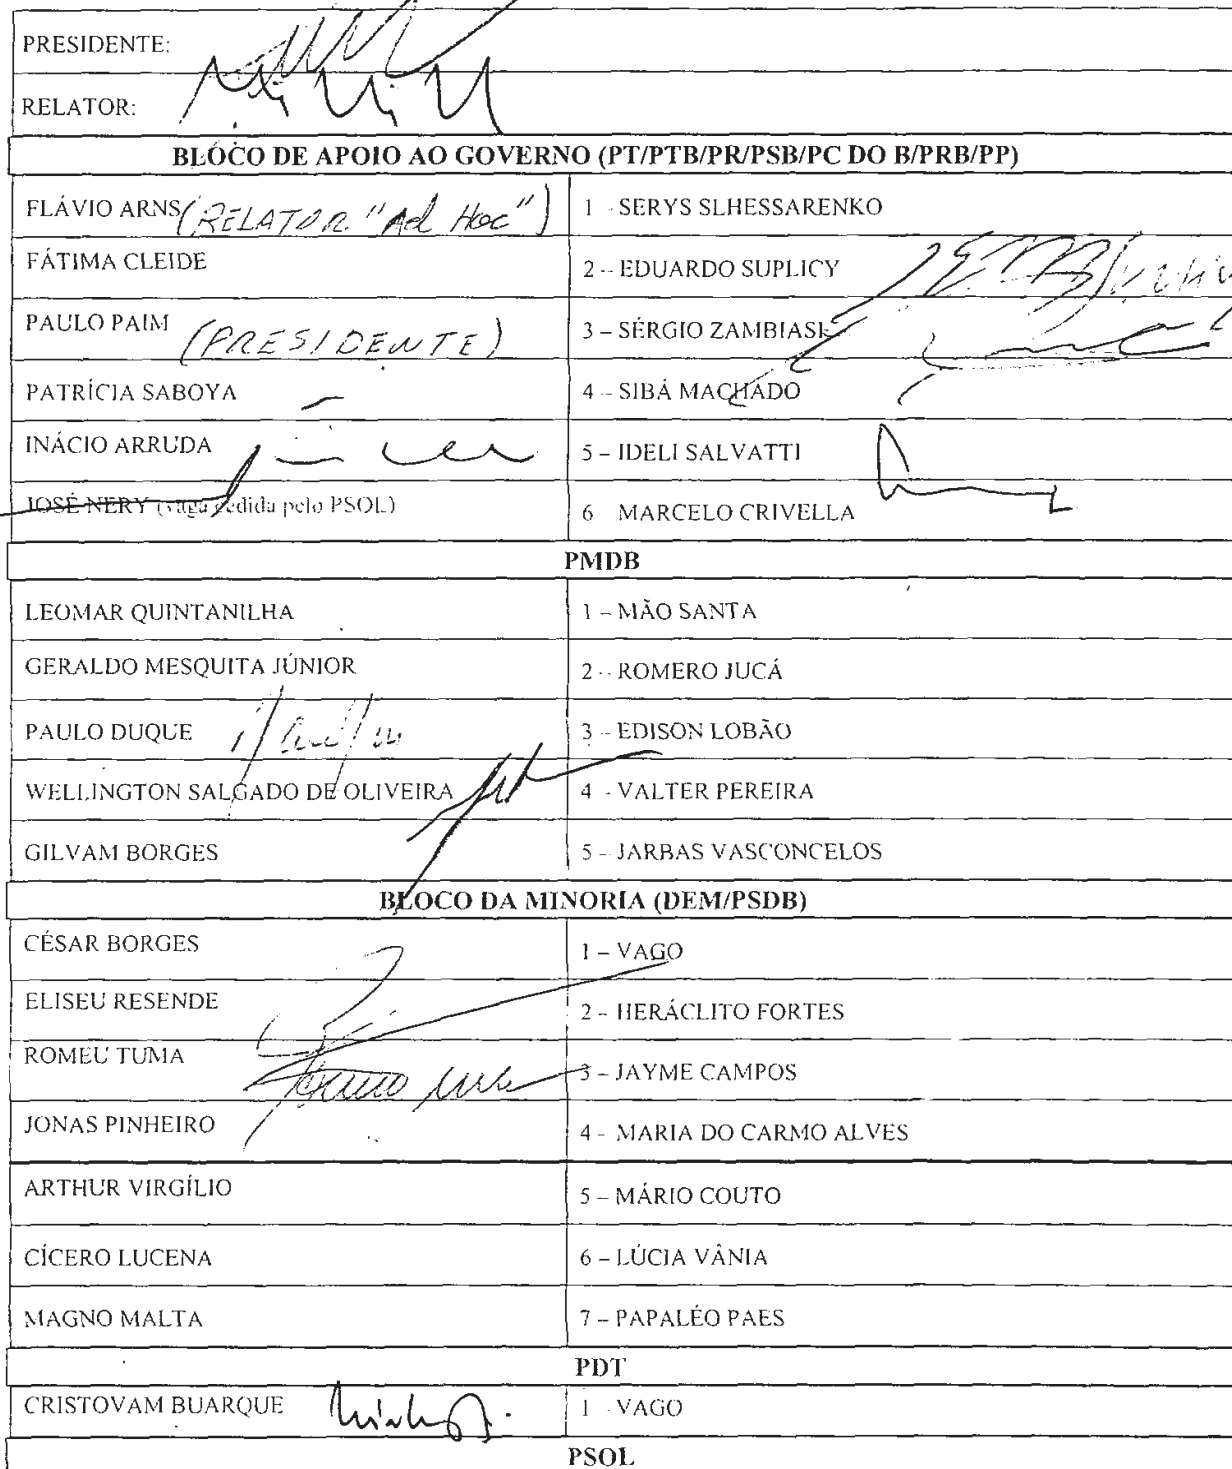 PRESIDENTE:
RELATOR:
BLOCO DE APOIO AO GOVERNO (PT/PTB/PR/PSB/PC DO B/PRB/PP)
FLÁVIO ARNS (RELATOR "Ad Hoc") 1 - SERYS SLHESSARENKO
FÁTIMA CLEIDE 2 - EDUARDO SUPLICY
PAULO PAIM (PRESIDENTE) 3 – SÉRGIO ZAMBIASI
PATRÍCIA SABOYA 4 – SIBÁ MACHADO
INÁCIO ARRUDA 5 – IDELI SALVATTI
JOSÉ NERY (vaga cedida pelo PSOL) 6 MARCELO CRIVELLA
PMDB
LEOMAR QUINTANILHA 1 – MÃO SANTA
GERALDO MESQUITA JÚNIOR 2 - ROMERO JUCÁ
PAULO DUQUE 3 – EDISON LOBÃO
WELLINGTON SALGADO DE OLIVEIRA 4 - VALTER PEREIRA
GILVAM BORGES 5 – JARBAS VASCONCELOS
BLOCO DA MINORIA (DEM/PSDB)
CÉSAR BORGES 1 – VAGO
ELISEU RESENDE 2 – HERÁCLITO FORTES
ROMEU TUMA 3 – JAYME CAMPOS
JONAS PINHEIRO 4 - MARIA DO CARMO ALVES
ARTHUR VIRGÍLIO 5 – MÁRIO COUTO
CÍCERO LUCENA 6 – LÚCIA VÂNIA
MAGNO MALTA 7 – PAPALÉO PAES
PDT
CRISTOVAM BUARQUE 1 - VAGO
PSOL